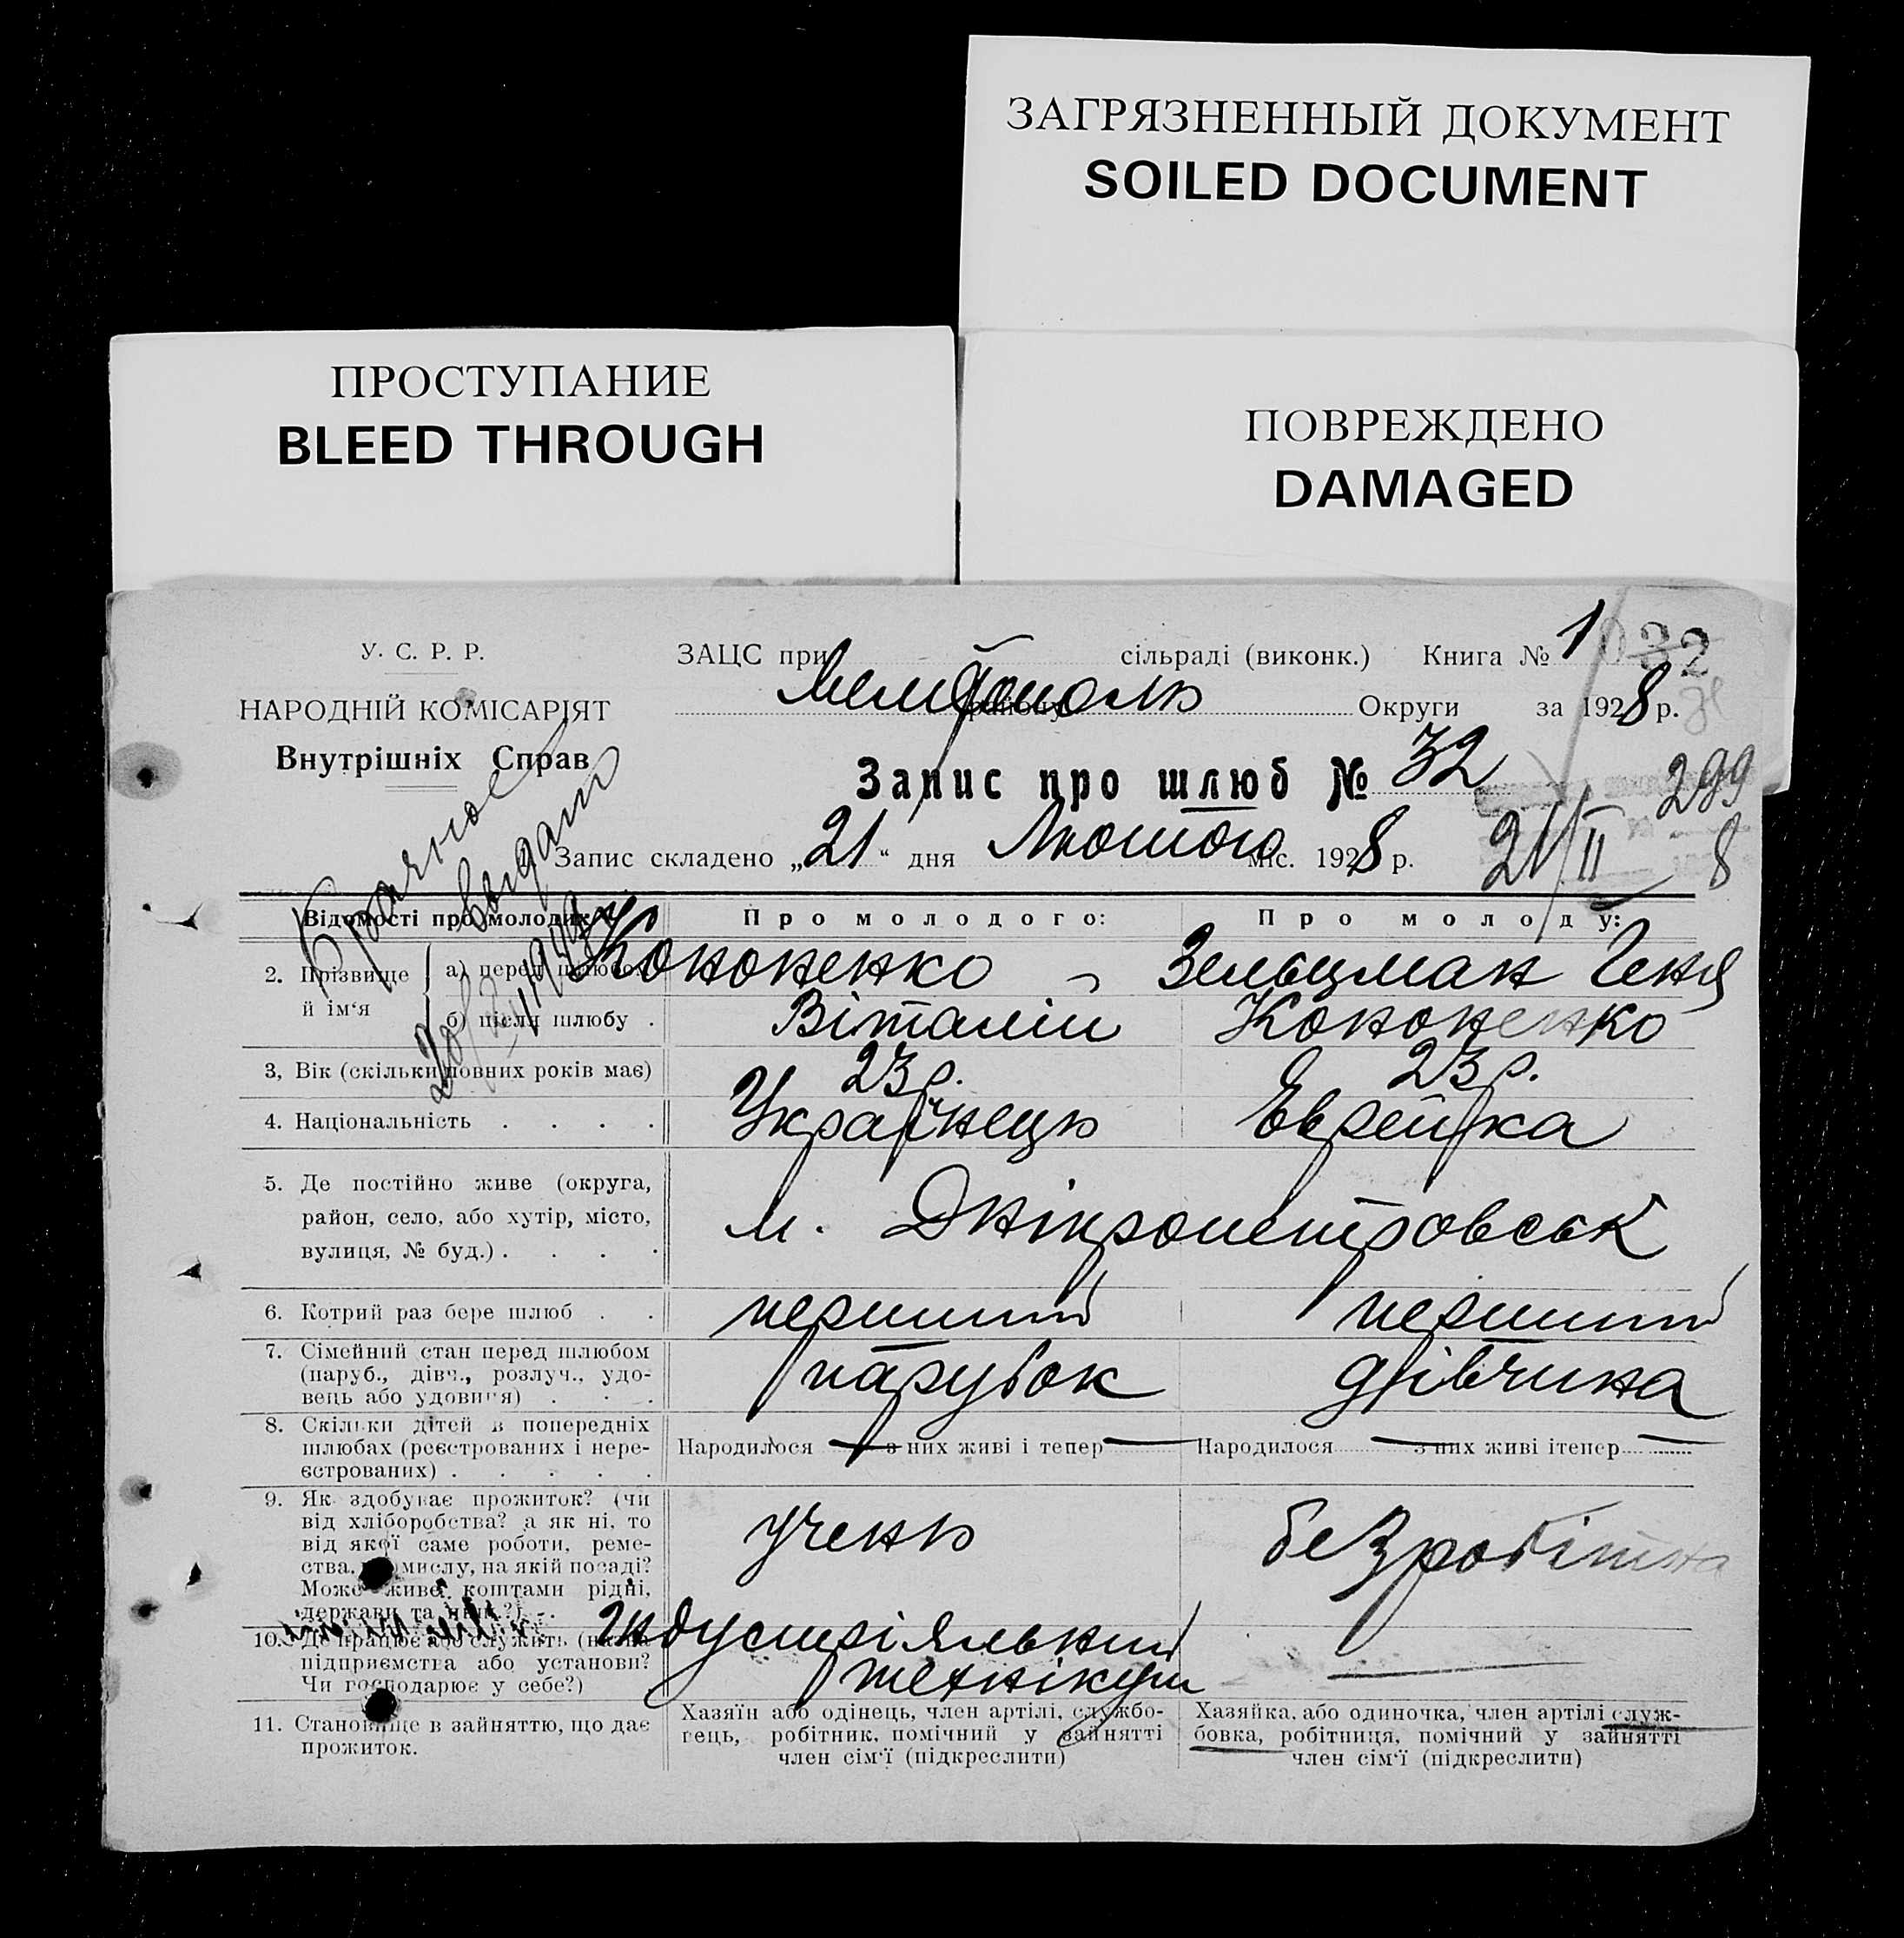 ЗАГРЯЗНЕННЫЙ ДОКУМЕНТ
SOILED DOCUMENT
ПРОСТУПАНИЕ
BLEED THROUGH
ПОВРЕЖДЕНО
DAMAGED
У. С. Р. Р.
НАРОДНІЙ КОМІСАРІЯТ
Внутрішніх Справ
ЗАЦС при сільраді (виконк.) Книга № 1
32
Мелітополь району Округи за 1928 р.
Запис про шлюб № 32
299
Запис складено „21“ дня Лютого міс. 1928 р.
21/II 8
Брачное
выдано
Відомості про молодих
Про молодого:
Про молоду:
2. Прізвище й ім‘я
а) перед шлюбом
Кононенко
Зельцман Геня
б) після шлюбу .
Віталій
Кононенко
3, Вік (скільки повних років має)
23 р.
23 р.
4. Національність . . . .
Українець
Еврейка
5. Де постійно живе (округа,
район, село, або хутір, місто,
вулиця, № буд.) . . . .
м. Дніпропетровськ
6. Котрий раз бере шлюб . .
перший
перший
7. Сімейний стан перед шлюбом
(паруб., дівч., розлуч., удо-
вець або удовиця) . . .
парубок
дівчина
8. Скільки дітей в попередніх
шлюбах (реєстрованих і нере-
єстрованих) . . . . .
Народилося — з них живі і тепер —
Народилося — з них живі ітепер —
9. Як здобуває прожиток? (чи
від хліборобства? а як ні, то
від якої саме роботи, реме-
ства, промислу, на якій посаді?
Може живе коштами рідні,
держави та инш.?) . .
учень
безробітна
10. Де працює або служить (назва
підприємства або установи?
Чи господарює у себе?)
Індустріяльний
технікум
—
11. Становище в зайняттю, що дає
прожиток.
Хазяїн або одінець, член артілі, службо-
вець, робітник, помічний у зайнятті
член сім‘ї (підкреслити)
Хазяйка, або одиночка, член артілі служ-
бовка, робітниця, помічний у зайнятті
член сім‘ї (підкреслити)